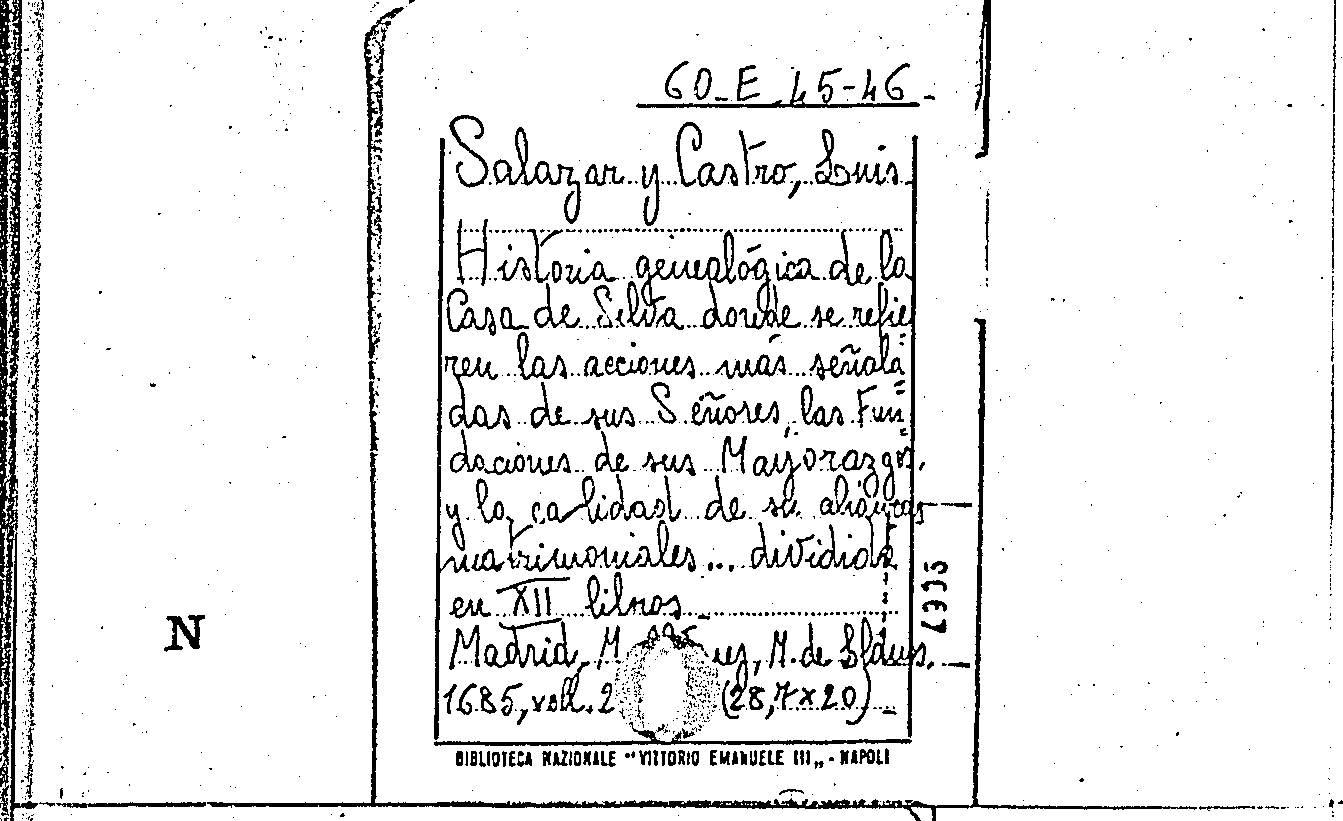 60_E_45-46_
Salazar y Castro, Luis.
Historia genealógica de la
Casa de Silva donde se refie
ren las acciones más señala=
das de sus Señores, las Fun=
daciones de sus Mayorazgos,
y la calidad de su
matrimoniales... dividida
en XII libros_
N
Madrid, M. de
1685, voll. 2 (28,7×20)_
BIBLIOTECA NAZIONALE "VITTORIO EMANUELE III„ - NAPOLI